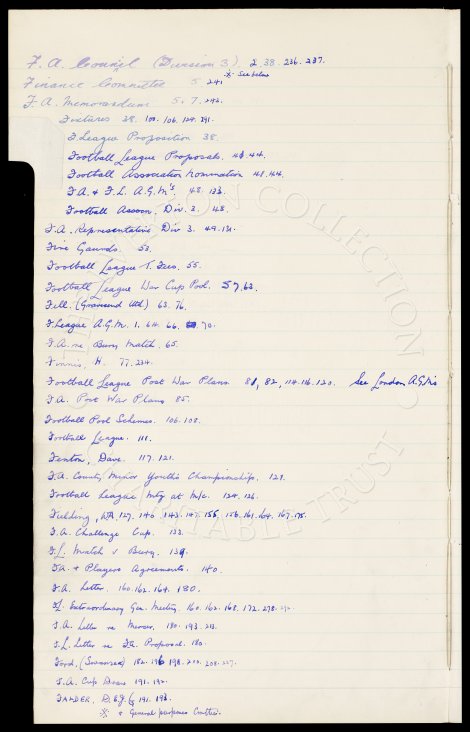 F. A. Council (Division 3) 2 38. 236. 237.
※ See below
Finance Committee 5. 241
F. A. Memorandum 5. 7. 242.
Fixtures 38. 100. 106. 124. 291.
F League Proposition 38.
Football League Proposals. 43.44.
Football Association Nomination 48.144.
F.A. & F.L. A.G.M's. 48. 133.
Football Assocn. Div 3. 48.
F.A. Representative Div 3. 49. 131.
Fire Guards. 53.
Football League T. Fees. 55.
Football League War Cup Pool. 57. 63.
Fell. (Gravesend Utd) 63. 76.
F. League A.G.M. 1. 64. 66. 70.
F.A. re Bury Match. 65.
Finnis, H. 77. 234.
Football League Post War Plans. 81, 82, 114.116.120. See London A.G.M's
F.A. Post War Plans 85.
Football Pool Schemes. 106. 108.
Football League. 111.
Fenton, Dave. 117. 121.
F.A. County Minor Youths Championship. 121.
Football League Mtg at M/c. 124. 126.
Fielding, WA. 127. 140. 143. 147. 155. 156. 161. 164. 167. 175.
F.A. Challenge Cup. 133.
F.L. Match v Bury. 139.
F.A. & Players Agreements. 140.
F.A. Letter. 160. 162. 164. 180.
F.L. Extraordinary Gen. Meeting. 160. 162. 168. 172. 278.
F.A. Letter re Mercer. 180. 193. 213.
F.L. Letter re F.A. Proposal. 180.
Ford, (Swansea) 182. 196 198. 202. 208. 227.
F.A. Cup Draw 191. 192.
FARDER, D.G.G. 191. 193.
※ & General purposes Cmttee.
COLLECTION
CHARITABLE TRUST